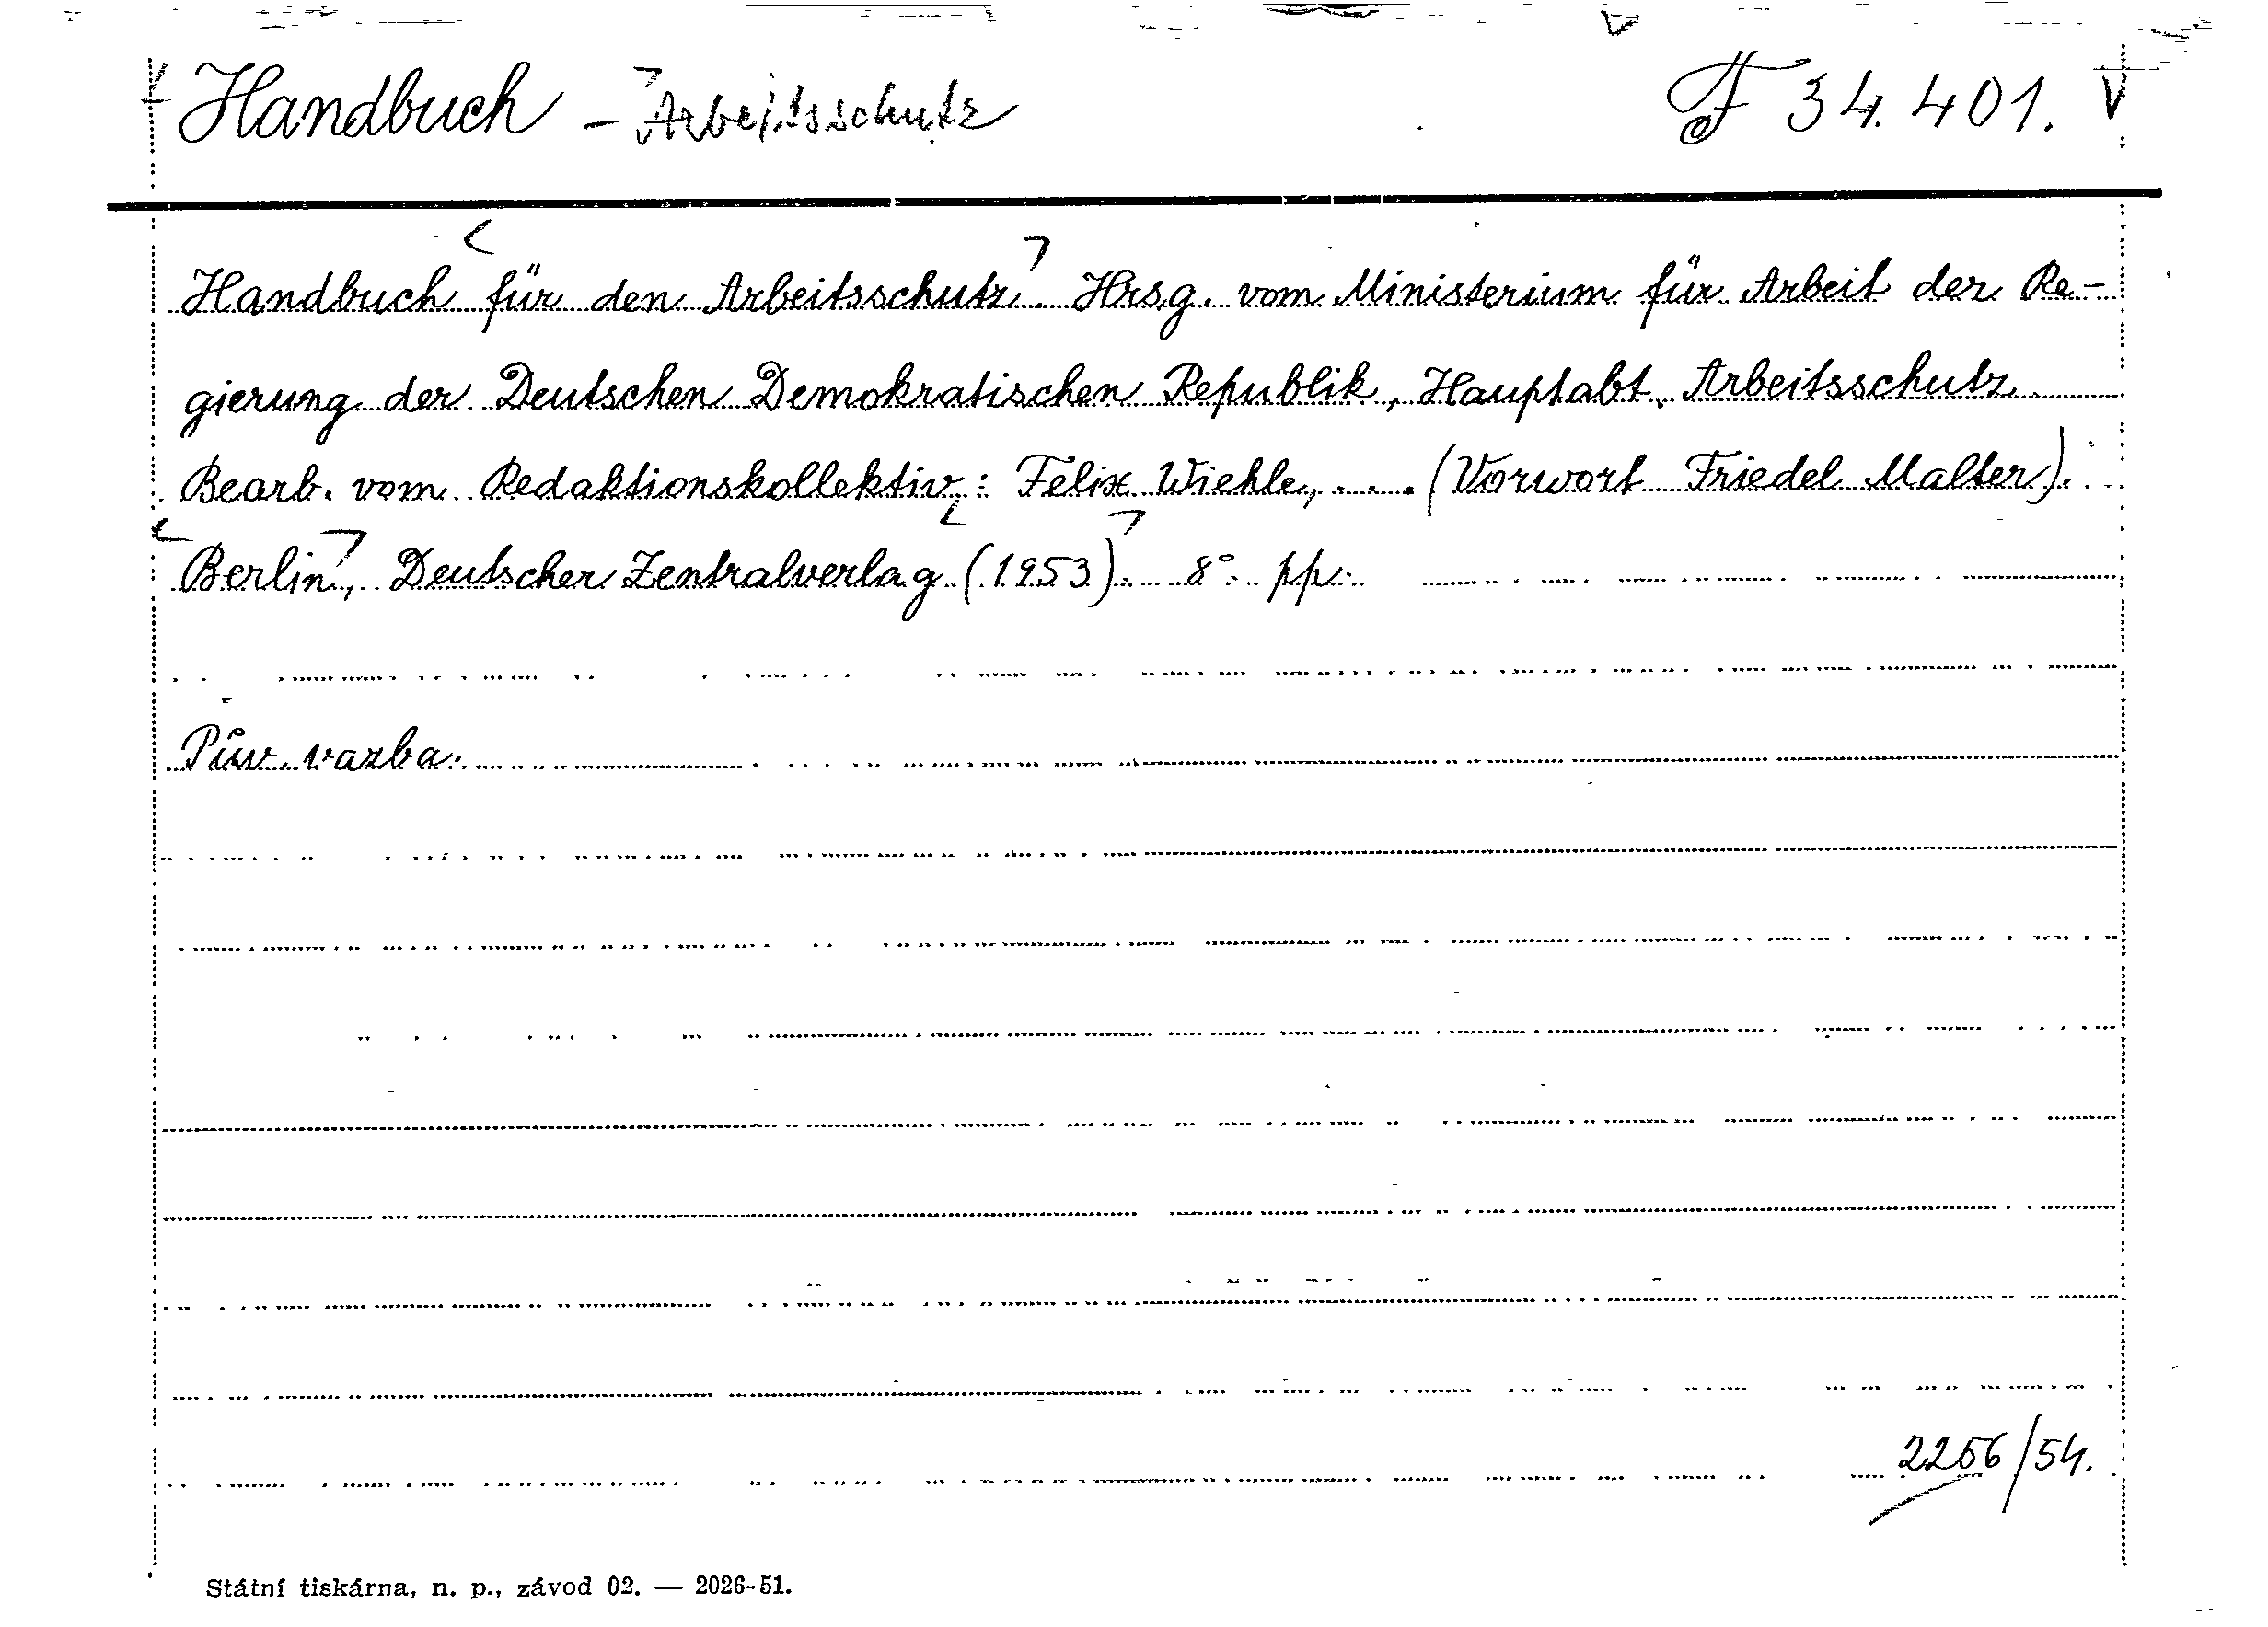 Handbuch - Arbeitsschutz F 34.401.
Handbuch für den Arbeitsschutz. Hrsg. vom Ministerium für Arbeit der Re-
gierung der Deutschen Demokratischen Republik, Hauptabt. Arbeitsschutz.
Bearb. vom Redaktionskollektiv: Felix Wiehle, ... (Vorwort Friedel Malter).
Berlin, Deutscher Zentralverlag (1953). 8°. pp.
Pův. vazba.
2256/54.
Státní tiskárna, n. p., závod 02. — 2026-51.